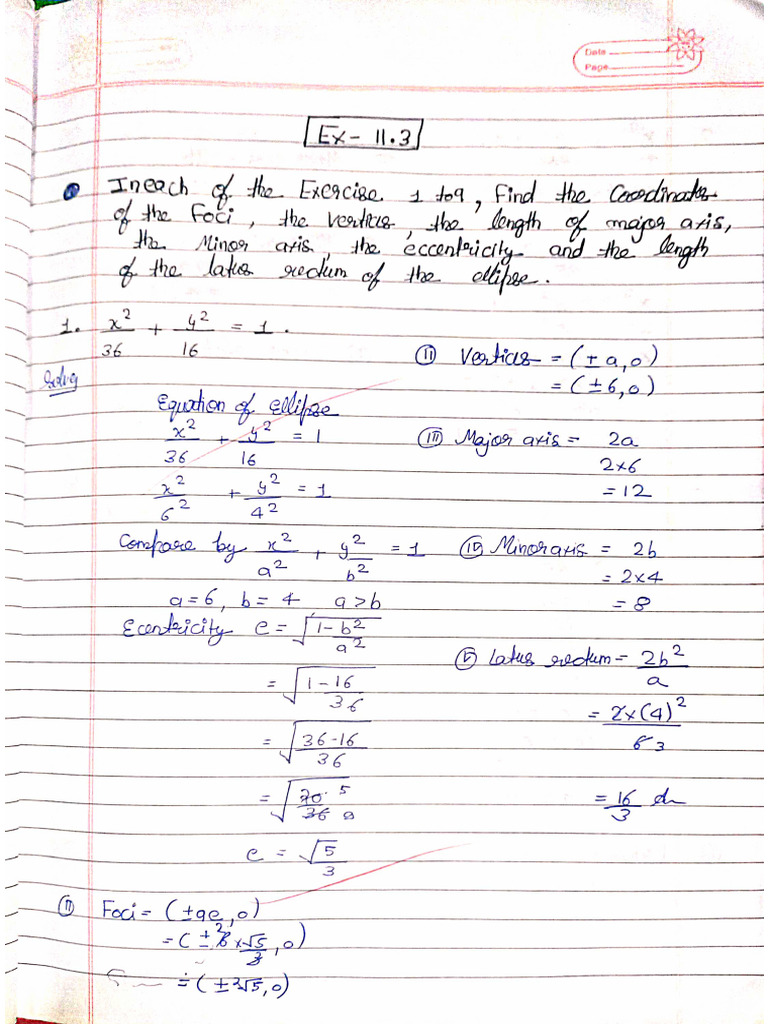 Date
Page
Ex - 11.3
In each of the Exercise 1 to 9, Find the Coordinates
of the Foci, the vertices, the length of major axis,
the Minor axis, the eccentricity and the length
of the latus rectum of the ellipse.
1. x²/36 + y²/16 = 1.
Equation of ellipse
x²/36 + y²/16 = 1
x²/6² + y²/4² = 1
Compare by x²/a² + y²/b² = 1
a = 6, b = 4 a > b
Ecentricity e = √(1 - b²/a²)
= √(1 - 16/36)
= √(36-16/36)
= √(20/36) 5 9
e = √5/3
(ii) Foci = (±ae, 0)
= (±6 × √5/3, 0) 2
= (±2√5, 0)
(ii) Vertices = (±a, 0)
= (±6, 0)
(iii) Major axis = 2a
2×6
= 12
(iv) Minor axis = 2b
= 2×4
= 8
(v) Latus rectum = 2b²/a
= 2×(4)²/6 3
= 16/3